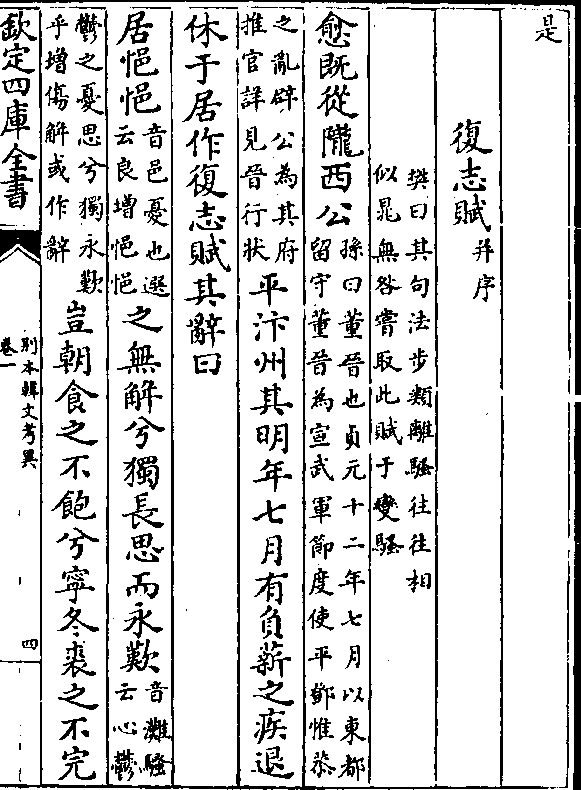 是
復志賦并序
樊曰其句法步類離騷往往相
似晁無咎嘗取此賦于變騷
愈既從隴西公孫曰董晉也貞元十二年七月以東都
留守董晉為宣武軍節度使平鄧惟恭
之亂辟公為其府
推官詳見晉行狀平汴州其明年七月有負薪之疾退
休于居作復志賦其辭曰
居悒悒音邑憂也選
云良增悒悒之無解兮獨長思而永歎音灘騷
云心鬱
鬱之憂思兮獨永歎
乎增傷解或作辭豈朝食之不飽兮寧冬裘之不完
欽定四庫全書
別本韓文考異
卷一
四